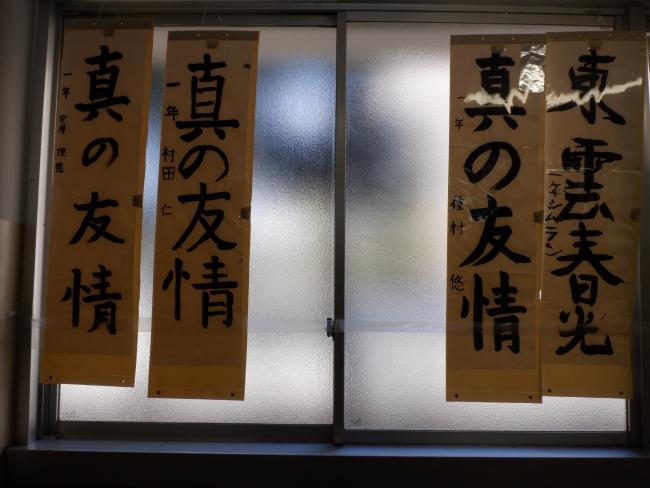 東雲春光
一年シムラン
真の友情
一年 種村 悠
真の友情
一年 村田 仁
真の友情
一年